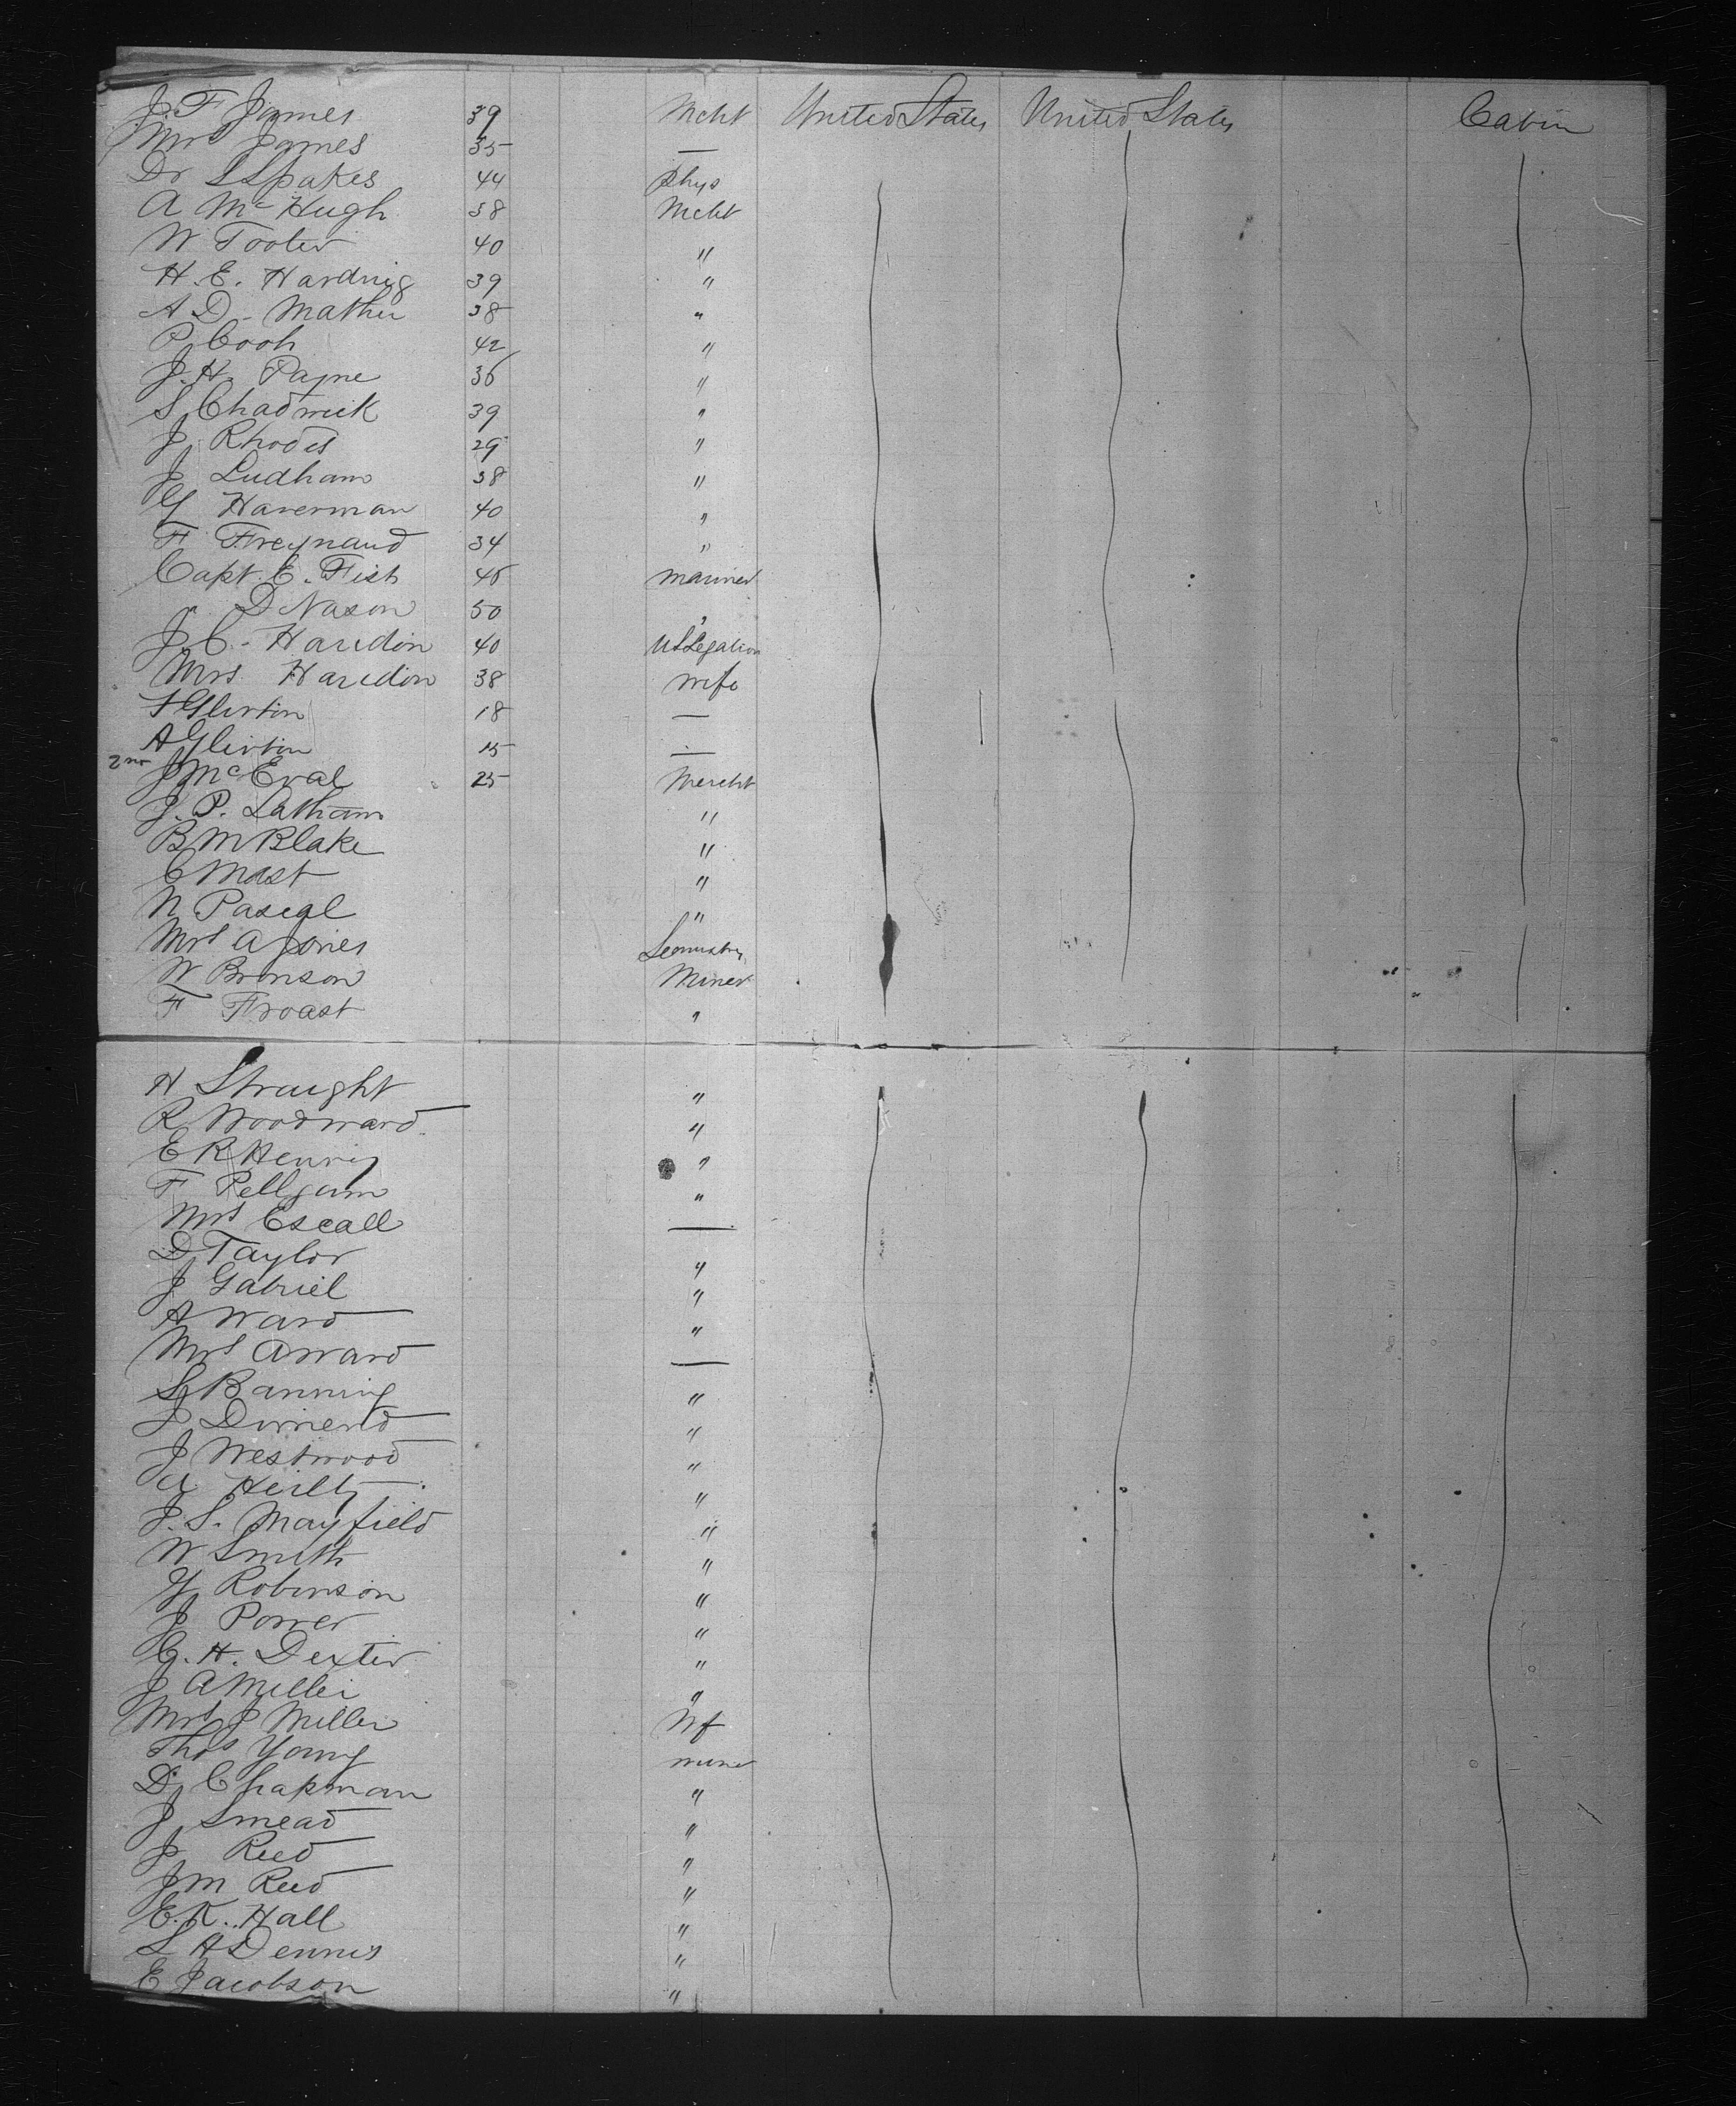 J. F James 39 Mcht United States United States Cabin
Mrs James 35 —
Dr S Spakes 44 Phys
A McHugh 38 Mcht
W Tooler 40 "
H. E. Harding 39 "
A D. Mather 38 "
P Cook 42 "
J. H. Payne 36 "
S Chadwick 39 "
J Rhodes 29 "
J Ludham 38 "
G Haverman 40 "
F Freynaud 34 "
Capt. E. Fish 45 mariner
" D Nason 50 "
J. C. Haridon 40 US Legation
Mrs Haridon 38 wife
18 —
A 15 —
2nd J McEval 25 Mercht
J. P. Latham "
B M Blake "
C Mast "
N Pascal "
Mrs A Jones
W Bronson Miner
F Froast "
H Straight "
R Woodward "
E R Henry "
F Pellgam "
Mrs Escall —
D Taylor "
J Gabriel "
A Ward "
Mrs A Ward —
S Banning "
J Dimend "
J Westwood "
A "
J. S. Mayfield "
W Smith "
Y Robinson "
J Power "
G. H. Dexter "
J A Miller "
Mrs J Miller Wf
Thos Young miner
D Chapman "
J Smead "
J Reed "
J M Reed "
E. K. Hall "
L A Dennis "
E Jacobson "